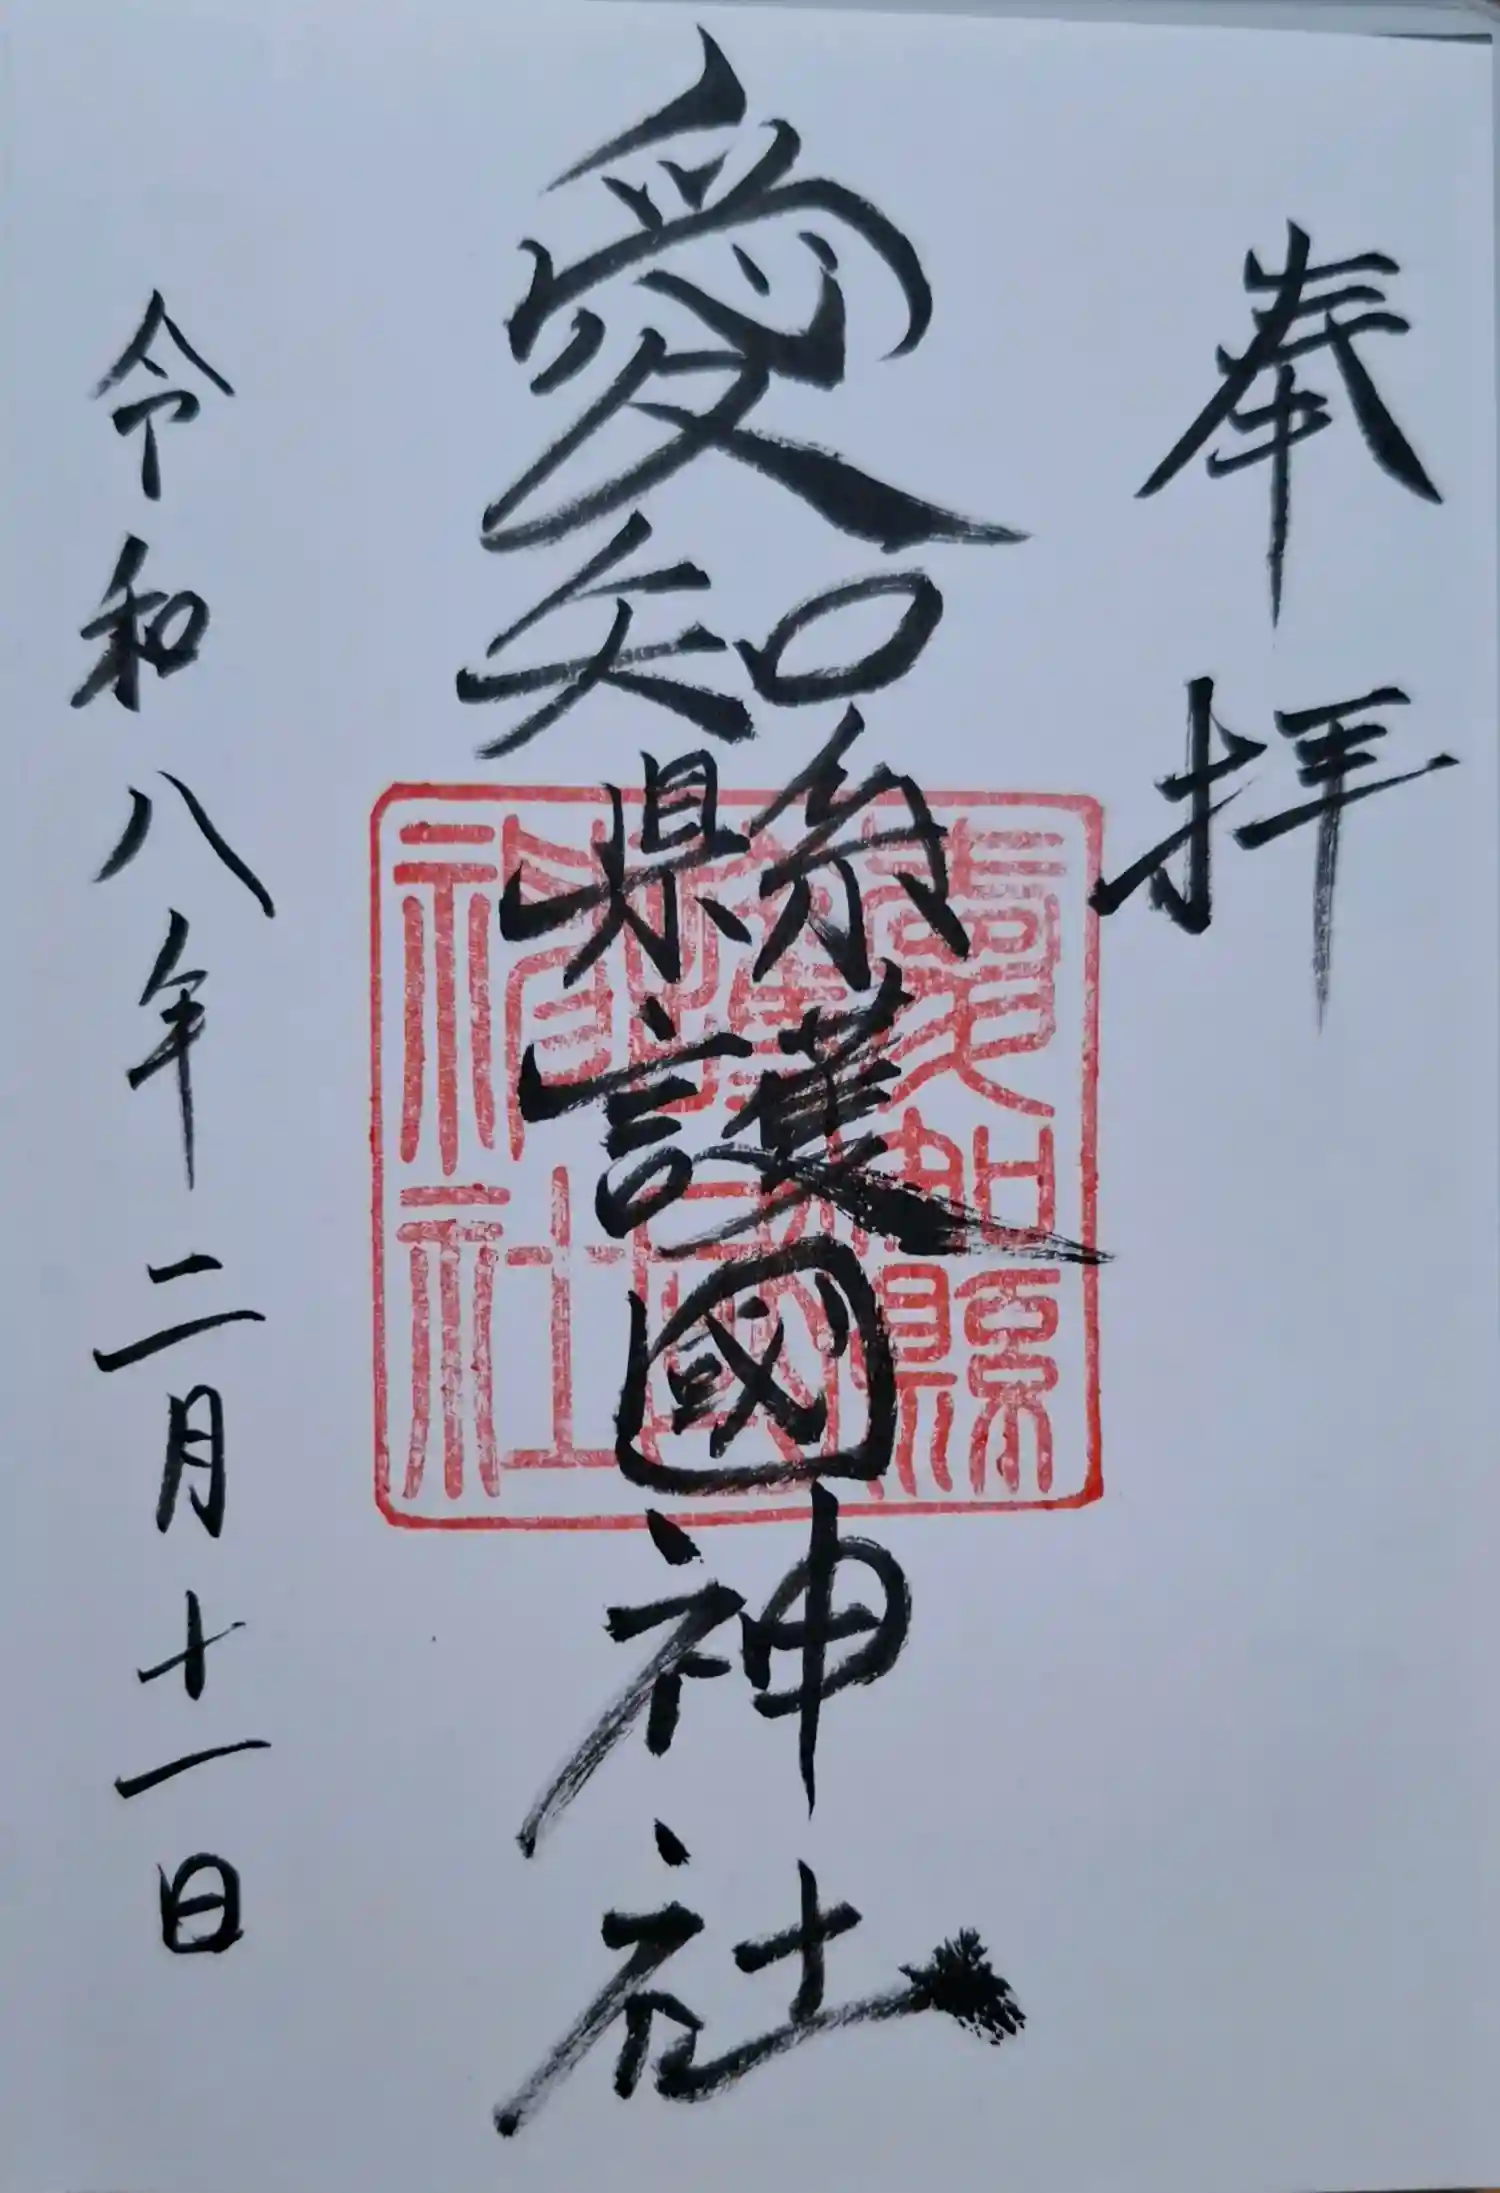 奉拝
愛知縣護國神社
愛知縣護國神社
令和八年二月十一日